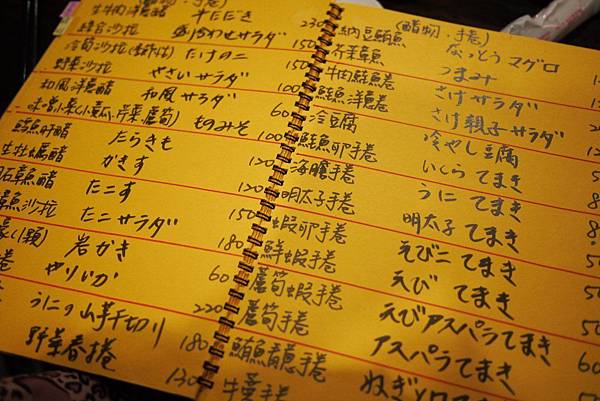 生牛肉洋蔥醋 牛たたき 230
綜合沙拉 盛り合わせサラダ 150
冷筍沙拉(季節佳) たけのこ 150
野菜沙拉 やさいサラダ
和風洋蔥醋 和風サラダ 60
味噌小菜(小黃瓜、芹菜、蘆筍) ものみそ 100
鱈魚肝醋 たらきも
生牡蠣醋 かきす 120
石章魚醋 たこす 120
章魚沙拉 たこサラダ 150
岩かき 180
やりいか 60
うにの山芋千切り 220
野菜春捲 180
130
(醋物、手捲)
納豆鮪魚 なっとうマグロ
芥茉魚 つまみ
牛肉鮭魚捲 さけサラダ
鮭魚洋蔥捲 さけ親子サラダ
冷豆腐 冷やし豆腐
鮭魚卵手捲 いくらてまき
海膽手捲 うにてまき
明太子手捲 明太子てまき
蝦卵手捲 えびこてまき
鮮蝦手捲 えびてまき
蘆筍蝦手捲 えびアスパラてまき
蘆筍手捲 アスパラてまき
鮪魚蔥手捲 ねぎトロてまき
牛蒡手捲